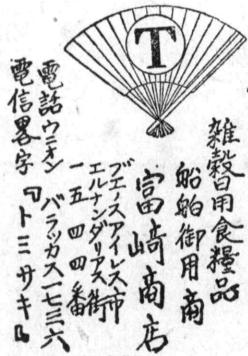 T
雑穀日用食糧品
船舶御用商
富崎商店
ブエノスアイレス市
エルナンダリアス街
一五四四番
電話ウニオン
バラッカス一七三六
電信畧字
『トミサキ』